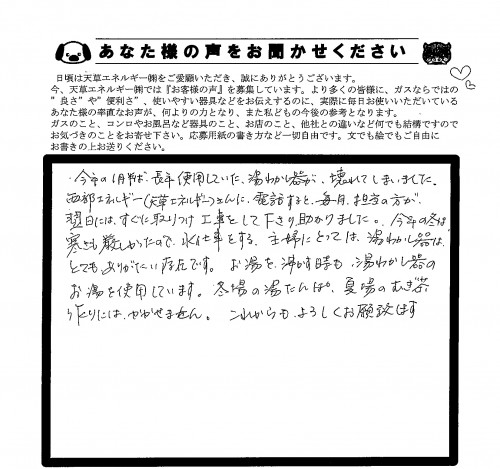 あなた様の声をお聞かせください
日頃は天草エネルギー㈱をご愛顧いただき、誠にありがとうございます。
今、天草エネルギー㈱では『お客様の声』を募集しています。より多くの皆様に、ガスならではの
"良さ"や"便利さ"、使いやすい器具などをお伝えするのに、実際に毎日お使いいただいている
あなた様の率直なお声が、何よりの力となり、また私どもの今後の参考となります。
ガスのこと、コンロやお風呂など器具のこと、お店のこと、他社との違いなど何でも結構ですので
お気づきのことをお寄せ下さい。応募用紙の書き方など一切自由です。文でも絵でもご自由に
お書きの上お送りください。
・今年の1月半ば、長年使用していた、湯わかし器が、壊れてしまいました。
西部エネルギー(天草エネルギー)さんに、電話すると、毎月、担当の方が、
翌日には、すぐに取りつけ工事をして下さり助かりました。今年の冬は
寒さも厳しかったので、水仕事をする、主婦にとっては、湯わかし器は、
とてもありがたい存在です。お湯を、沸かす時も、湯わかし器の
お湯を使用しています。冬場の湯たんぽや、夏場のむぎ茶
作りには、かかせません。これからも、よろしくお願い致します